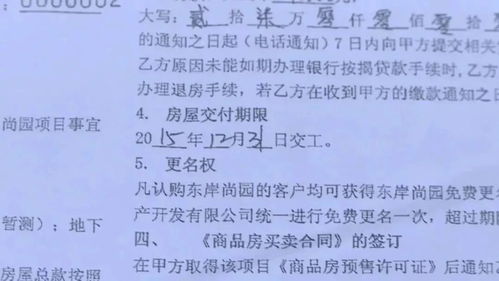 0000002
大写：贰 拾 柒 万 零 仟 零 佰 零 拾
的通知之日起（电话通知）7日内向甲方提交相关
乙方原因未能如期办理银行按揭贷款手续时，乙方
办理退房手续，若乙方在收到甲方的缴款通知之日
4. 房屋交付期限
尚园项目事宜
2015年12月31日交工。
5. 更名权
凡认购东岸尚园的客户均可获得东岸尚园免费更名
暂测）；地下
产开发有限公司统一进行免费更名一次，超过期
四、 《商品房买卖合同》的签订
房屋总款按照
在甲方取得该项目《商品房预售许可证》后通知乙